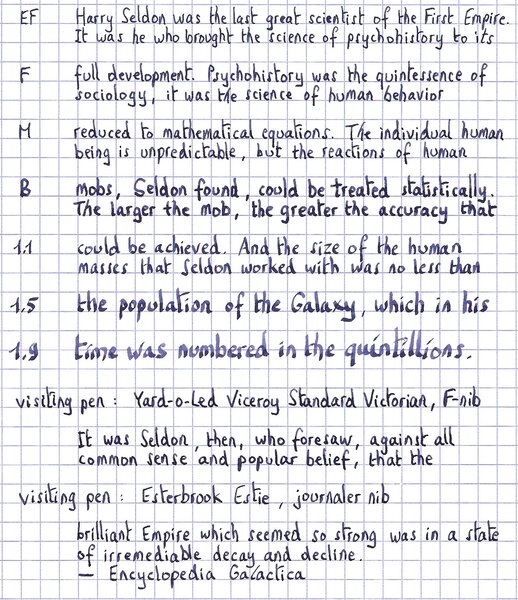 EF Harry Seldon was the last great scientist of the First Empire.
It was he who brought the science of psychohistory to its
F full development. Psychohistory was the quintessence of
sociology, it was the science of human behavior
M reduced to mathematical equations. The individual human
being is unpredictable, but the reactions of human
B mobs, Seldon found, could be treated statistically.
The larger the mob, the greater the accuracy that
1.1 could be achieved. And the size of the human
masses that Seldon worked with was no less than
1.5 the population of the Galaxy, which in his
1.9 time was numbered in the quintillions.
visiting pen : Yard-o-Led Viceroy Standard Victorian, F-nib
It was Seldon, then, who foresaw, against all
common sense and popular belief, that the
visiting pen : Esterbrook Estie, journaler nib
brilliant Empire which seemed so strong was in a state
of irremediable decay and decline.
— Encyclopedia Galactica